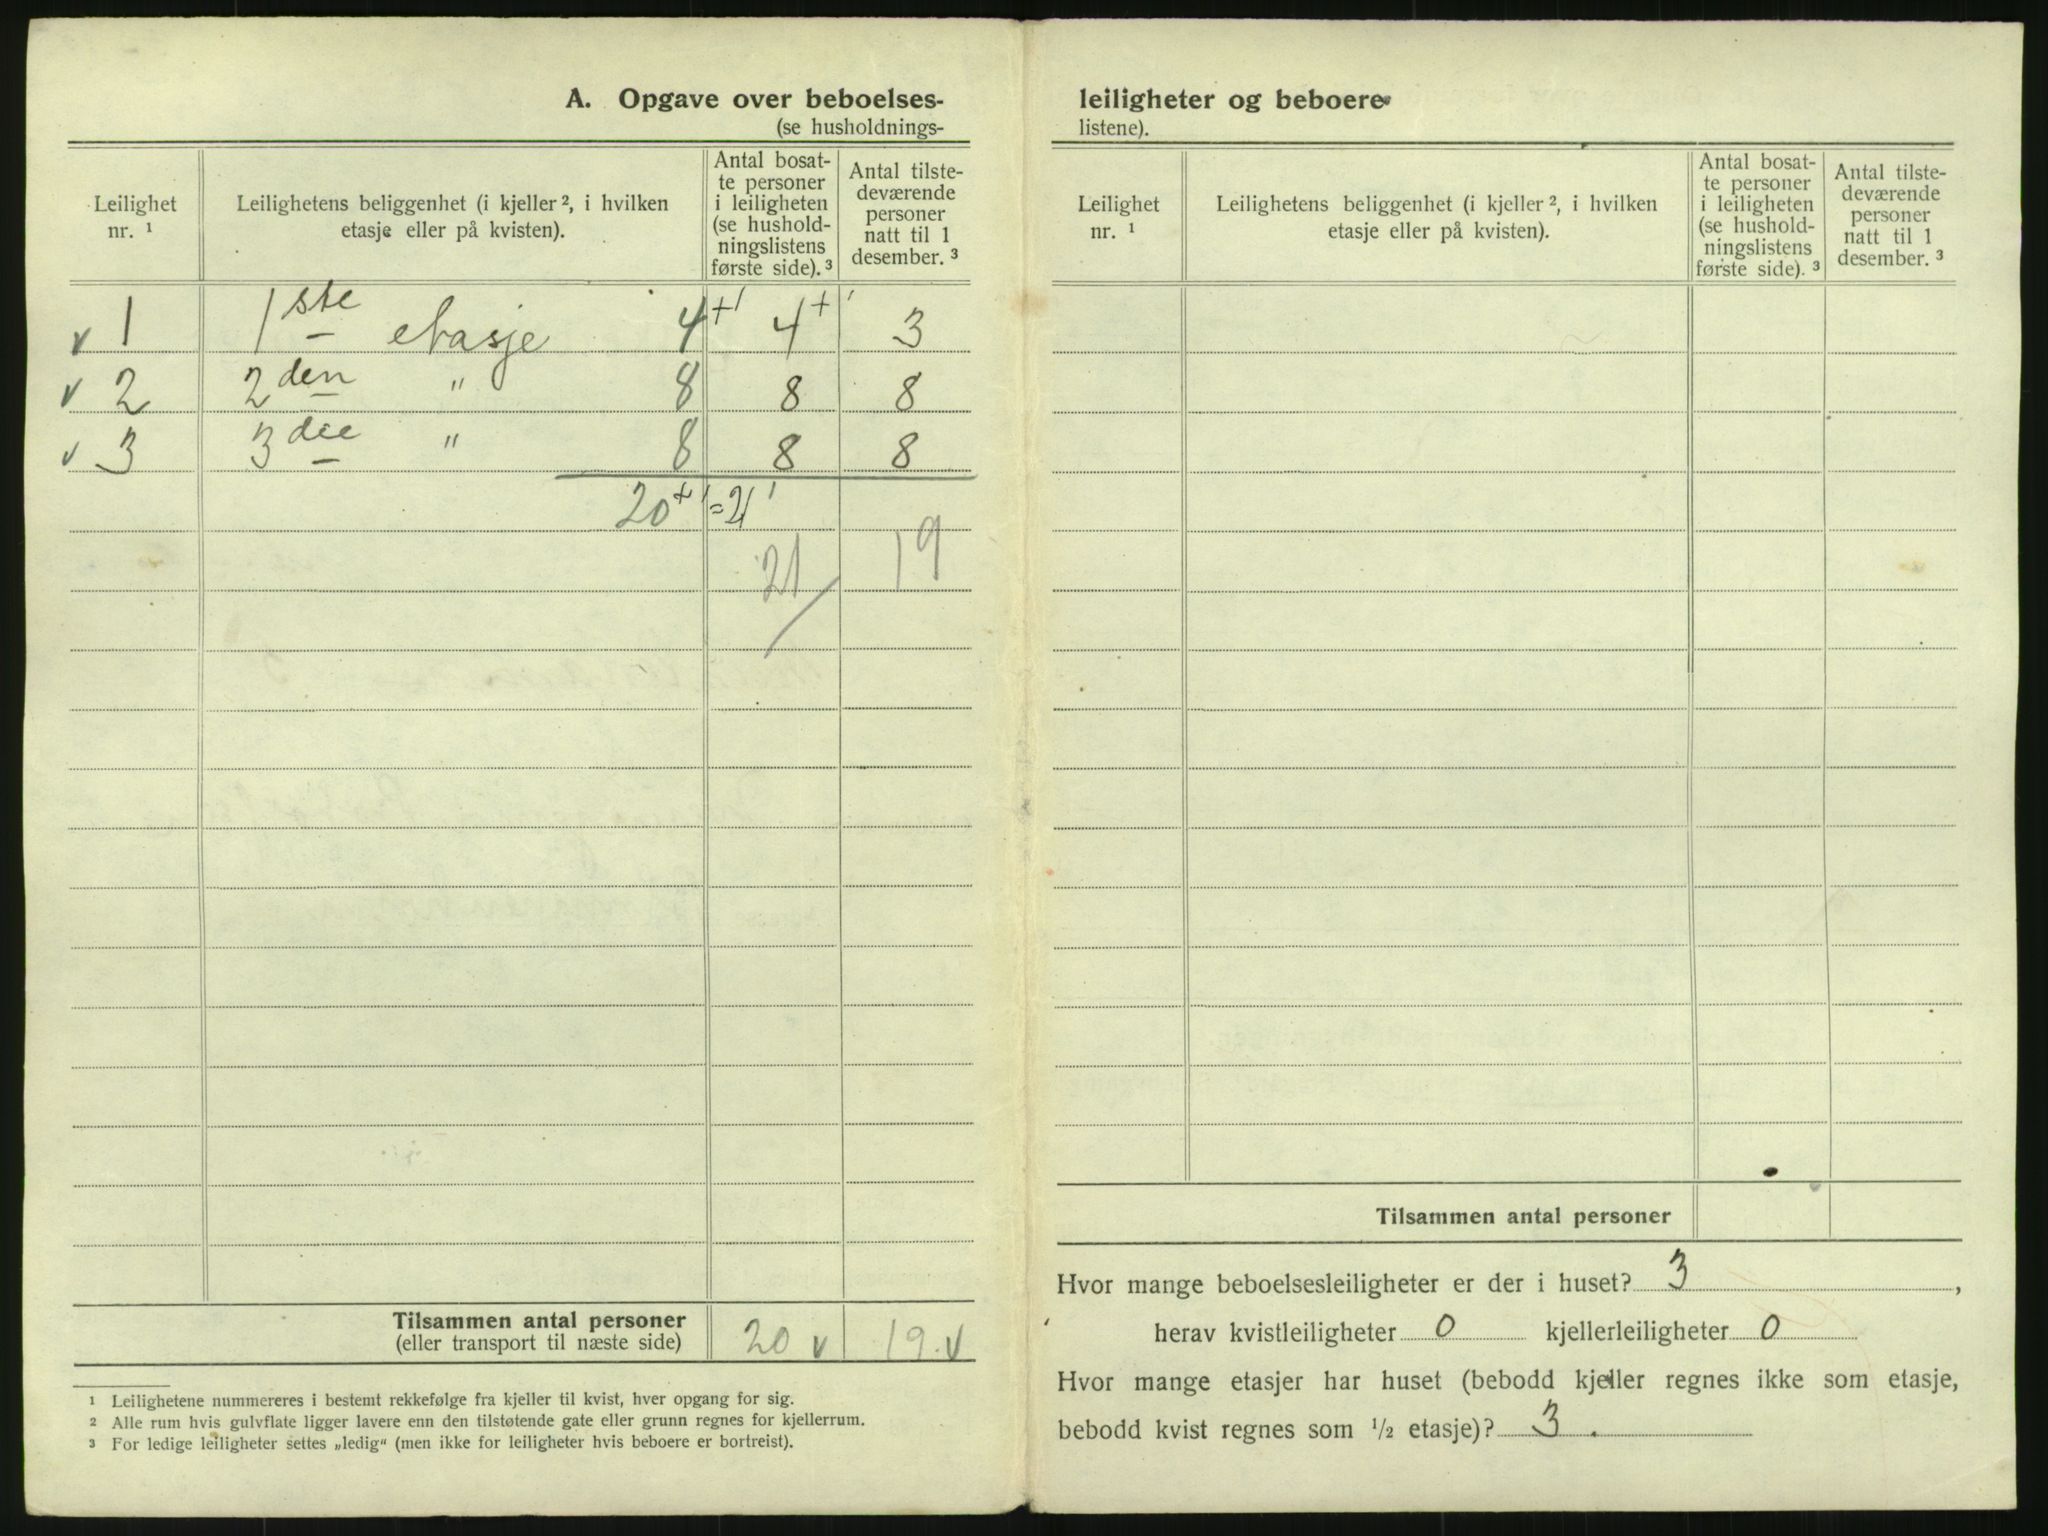 A. Opgave over beboelses-
(se husholdnings-
Leilighet nr. ¹
Leilighetens beliggenhet (i kjeller ², i hvilken etasje eller på kvisten).
Antal bosat-
te personer
i leiligheten
(se hushold-
ningslistens
første side). ³
Antal tilste-
deværende
personer
natt til 1
desember. ³
v 1 1ste etasje 4+1 4+1 3
v 2 2den " 8 8 8
v 3 3die " 8 8 8
20+1 = 21
21 19
Tilsammen antal personer
(eller transport til næste side) 20 v 19. v
¹ Leilighetene nummereres i bestemt rekkefølge fra kjeller til kvist, hver opgang for sig.
² Alle rum hvis gulvflate ligger lavere enn den tilstøtende gate eller grunn regnes for kjellerrum.
³ For ledige leiligheter settes „ledig“ (men ikke for leiligheter hvis beboere er bortreist).
leiligheter og beboere
listene).
Leilighet nr. ¹
Leilighetens beliggenhet (i kjeller ², i hvilken etasje eller på kvisten).
Antal bosat-
te personer
i leiligheten
(se hushold-
ningslistens
første side). ³
Antal tilste-
deværende
personer
natt til 1
desember. ³
Tilsammen antal personer
Hvor mange beboelsesleiligheter er der i huset? 3 ,
herav kvistleiligheter 0 kjellerleiligheter 0
Hvor mange etasjer har huset (bebodd kjeller regnes ikke som etasje,
bebodd kvist regnes som ½ etasje)? 3.